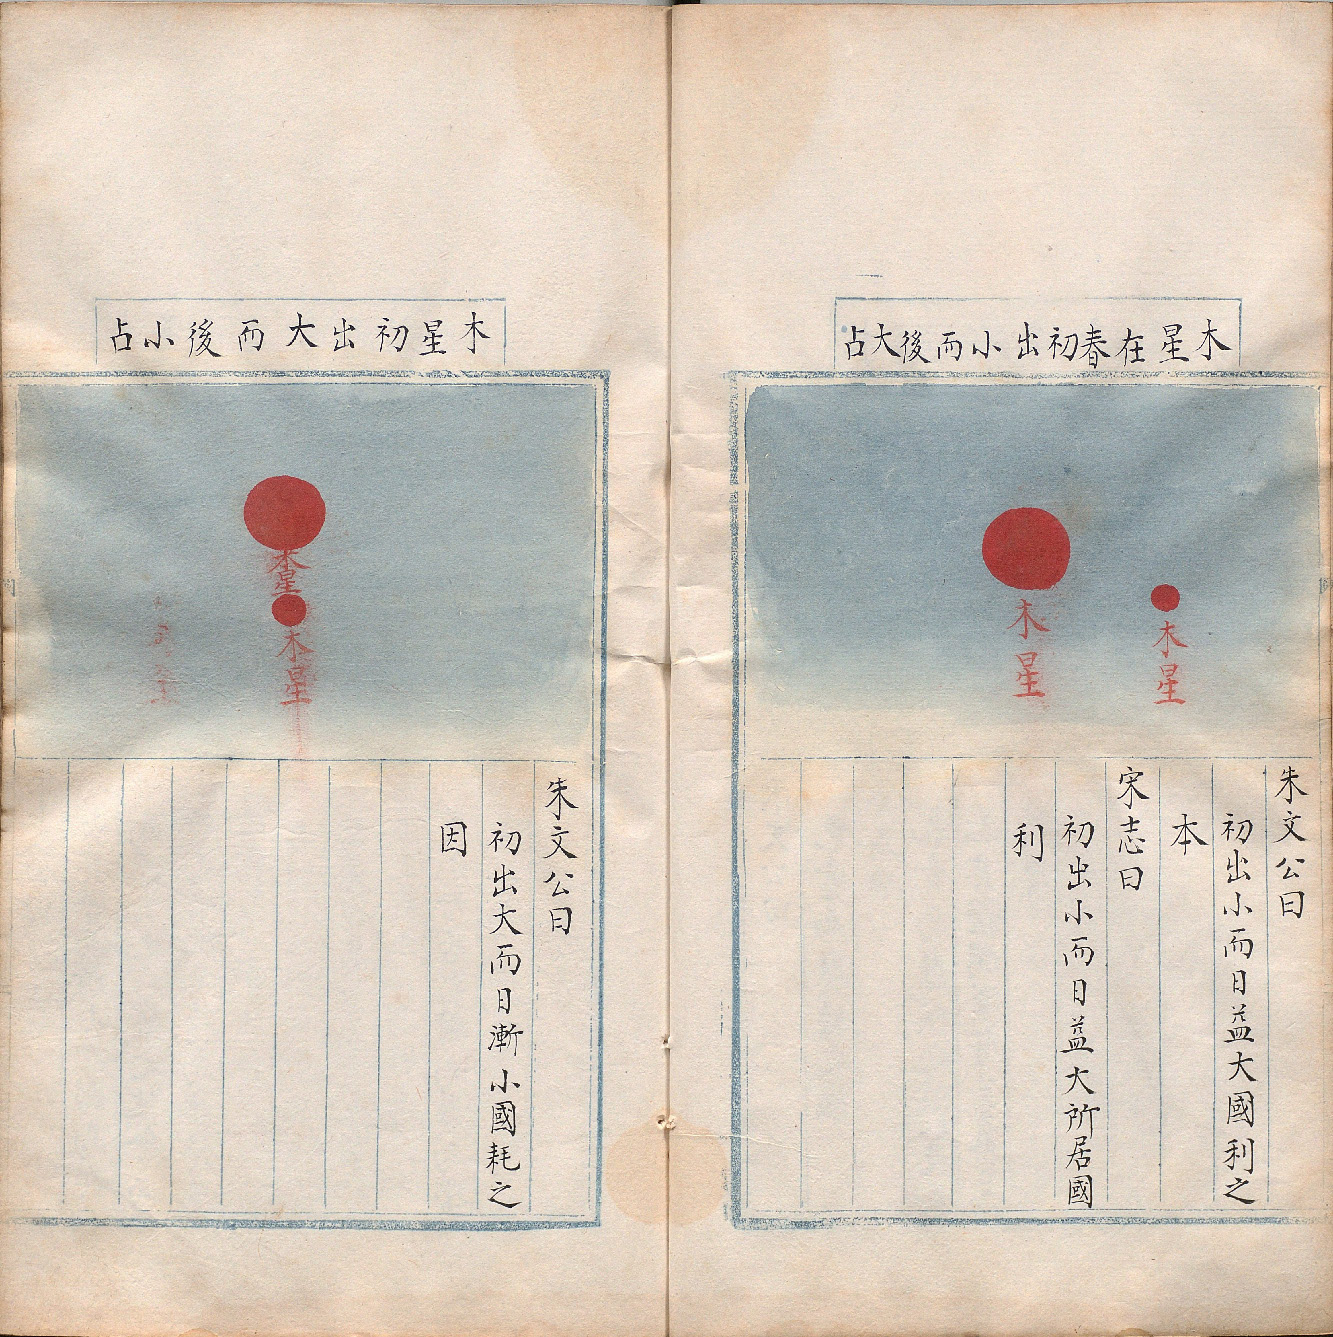 木星在春初出小而後大占
木星
木星
朱文公曰
初出小而日益大國利之
本
宋志曰
初出小而日益大所居國
利
木星初出大而後小占
木星
木星
朱文公曰
初出大而日漸小國耗之
因